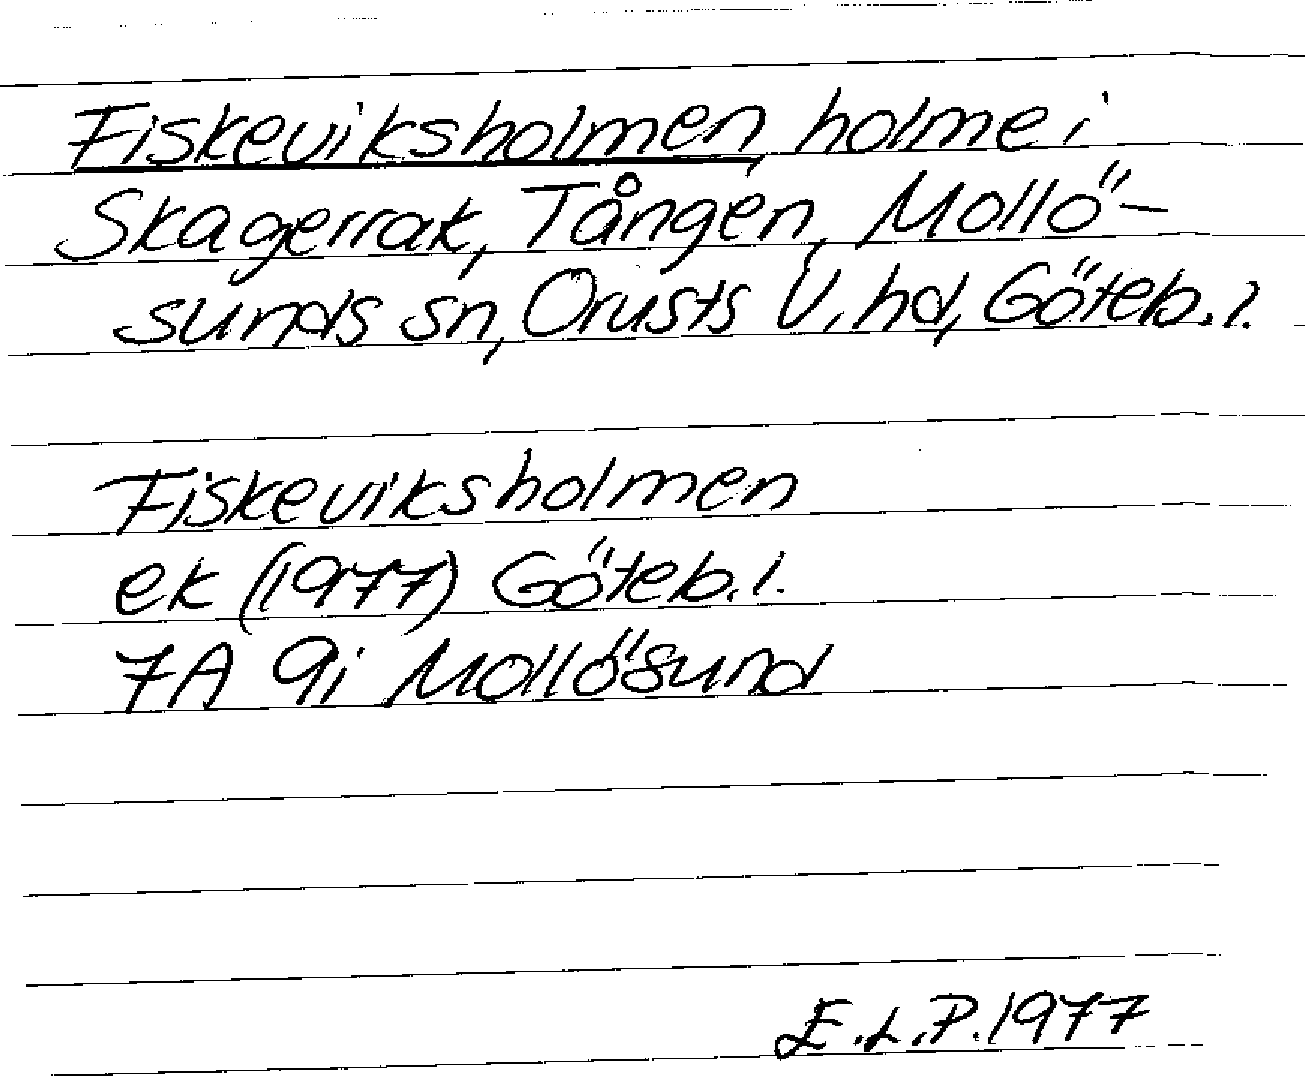 Fiskeviksholmen, holme i
Skagerrak, Tången, Mollö-
sunds sn, Orusts V. hd, Göteb. l.
Fiskeviksholmen
ek (1977) Göteb. l.
7A 9i Mollösund
E.L.P. 1977